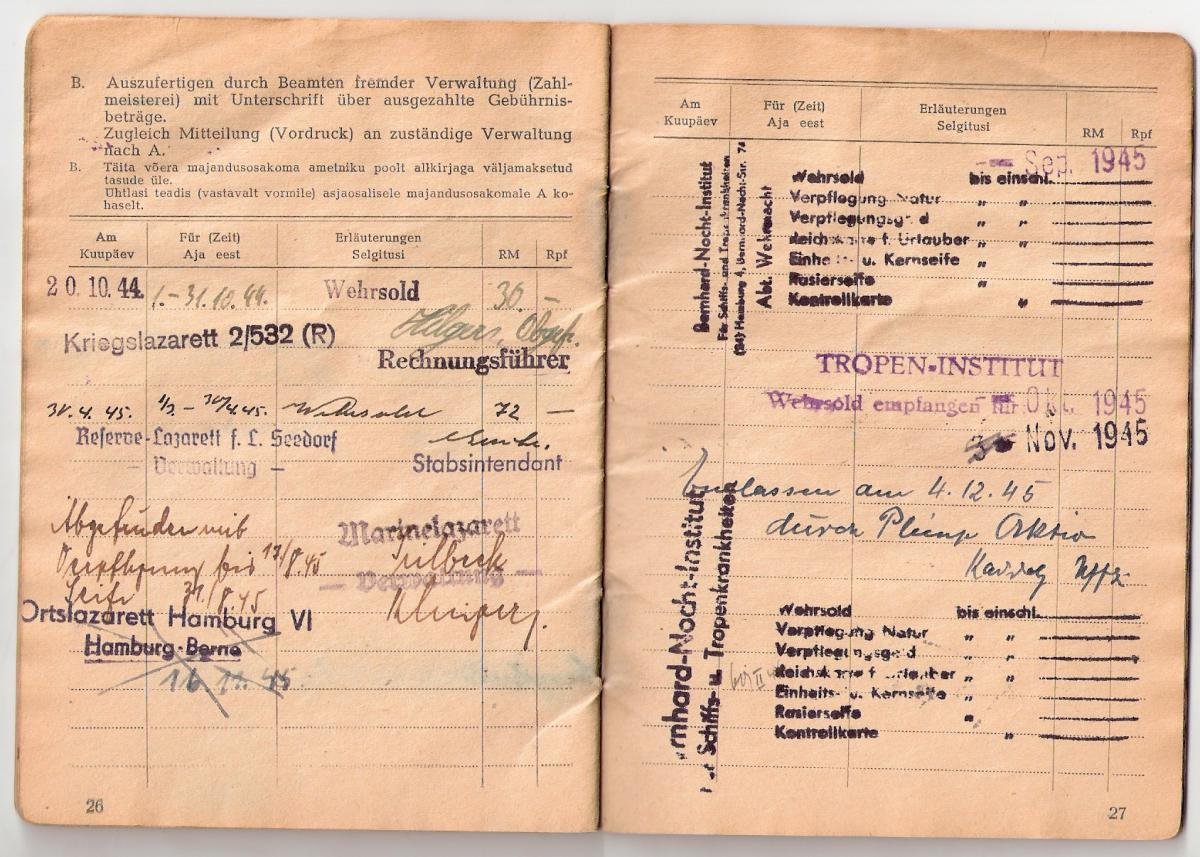 B. Auszufertigen durch Beamten fremder Verwaltung (Zahl-
meisterei) mit Unterschrift über ausgezahlte Gebührnis-
beträge.
Zugleich Mitteilung (Vordruck) an zuständige Verwaltung
nach A.
B. Täita võera majandusosakoma ametniku poolt allkirjaga väljamaksetud
tasude üle.
Uhtlasi teadis (vastavalt vormile) asjaosalisele majandusosakomale A ko-
haselt.
Am Für (Zeit) Erläuterungen RM Rpf
Kuupäev Aja eest Selgitusi
20.10.44. 1.–31.10.44. Wehrsold 30.–
Kriegslazarett 2/532 (R)
Rechnungsführer
30.4.45. 1/3.–30/4.45. Wehrsold 72 –
Reserve-Lazarett f. L. Seedorf
– Verwaltung –
Stabsintendant
Abgefunden mit
Verpflegung bis 17/8.45
Seife 31/8.45
Marinelazarett
– Verwaltung –
Ortslazarett Hamburg VI
Hamburg-Berne
16.11.45
26
Am Für (Zeit) Erläuterungen RM Rpf
Kuupäev Aja eest Selgitusi
Bernhard-Nocht-Institut
Für Schiffs- und Tropenkrankheiten
(24) Hamburg 4, Bernhard-Nocht-Str. 74
Abt. Wehrmacht
– Sep. 1945
Wehrsold bis einschl.
Verpflegung Natur " "
Verpflegungsgeld " "
Reichskarte f. Urlauber " "
Einheits- u. Kernseife "
Rasierseife "
Kontrollkarte "
TROPEN-INSTITUT
Wehrsold empfangen für Okt. 1945
Nov. 1945
Entlassen am 4.12.45
durch Aktion
Uffz
Bernhard-Nocht-Institut
für Schiffs- u. Tropenkrankheiten
Wehrsold bis einschl.
Verpflegung Natur " "
Verpflegungsgeld " "
Reichskarte f. Urlauber " "
Einheits- u. Kernseife "
Rasierseife "
Kontrollkarte "
27